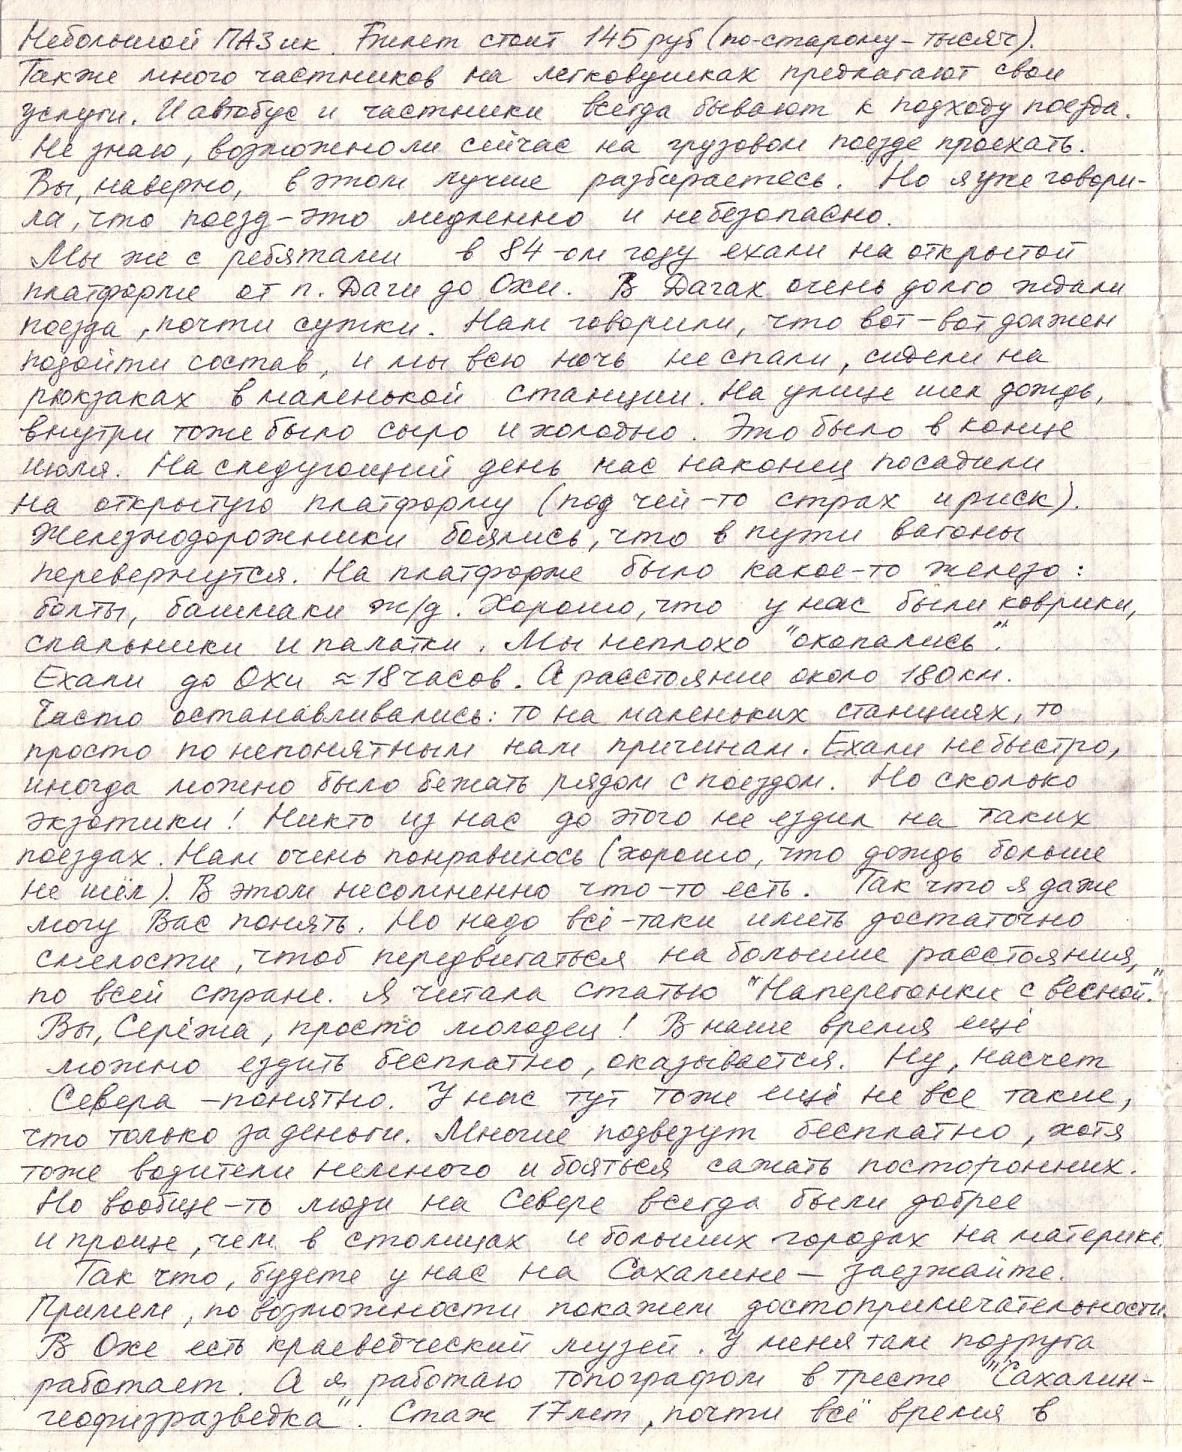 Небольшой ПАЗик. Билет стоит 145 руб (по-старому – тысяч).
Также много частников на легковушках предлагают свои
услуги. И автобус и частники всегда бывают к подходу поезда.
Не знаю, возможно ли сейчас на грузовом поезде проехать.
Вы, наверно, в этом лучше разбираетесь. Но я уже говори-
ла, что поезд – это медленно и небезопасно.
Мы же с ребятами в 84-ом году ехали на открытой
платформе от п. Даги до Охи. В Дагах очень долго ждали
поезда, почти сутки. Нам говорили, что вот-вот должен
подойти состав, и мы всю ночь не спали, сидели на
рюкзаках в маленькой станции. На улице шел дождь,
внутри тоже было сыро и холодно. Это было в конце
июля. На следующий день нас наконец посадили
на открытую платформу (под чей-то страх и риск).
Железнодорожники боялись, что в пути вагоны
перевернутся. На платформе было какое-то железо:
болты, башмаки ж/д. Хорошо, что у нас были коврики,
спальники и палатки. Мы неплохо "окопались".
Ехали до Охи ≈ 18 часов. А расстояние около 180 км.
Часто останавливались: то на маленьких станциях, то
просто по непонятным нам причинам. Ехали небыстро,
иногда можно было бежать рядом с поездом. Но сколько
экзотики! Никто из нас до этого не ездил на таких
поездах. Нам очень понравилось (хорошо, что дождь больше
не шёл). В этом несомненно что-то есть. Так что я даже
могу Вас понять. Но надо всё-таки иметь достаточно
смелости, чтоб передвигаться на большие расстояния,
по всей стране. Я читала статью "Наперегонки с весной".
Вы, Серёжа, просто молодец! В наше время ещё
можно ездить бесплатно, оказывается. Ну, насчет
Севера – понятно. У нас тут тоже ещё не все такие,
что только за деньги. Многие подвезут бесплатно, хотя
тоже водители немного и бояться сажать посторонних.
Но вообще-то люди на Севере всегда были добрее
и проще, чем в столицах и больших городах на материке.
Так что, будете у нас на Сахалине – заезжайте.
Примем, по возможности покажем достопримечательности.
В Охе есть краеведческий музей. У меня там подруга
работает. А я работаю топографом в тресте "Сахалин-
геофизразведка". Стаж 17 лет, почти всё время в